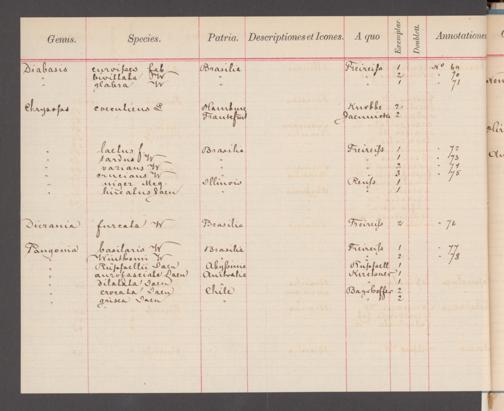 Genus. Species. Patria. Descriptiones et Icones. A quo Exemplar Doublett. Annotationes
Diabasis curvipes Fab Brasilia Freireiss 1 No 69
" bivittata W " " 2 " 70
" glabra W " " 1 " 71
Chrysops coecutiens L Hamburg Knobbe 2
Frankfurt 2
" laetus f Brasilia Freireiss 1 " 72
" tardus W " " 1 " 73
" varians W " " 2 " 74
" crucians W " " 3 " 75
" niger Mcq Illinois Reuss 1
" Jaen " " 1
Dicrania furcata W Brasilia Freireiss 2 " 76
Pangonia basilaris W Brasilia Freireiss 1 " 77
" Winthemi W " " 2 " 78
" Rüppellii Jaen Abyssinia Rüppell 1
" aurofasciata Jaen Australia Kirchner 1
" dilatata Jaen " " 1
" crocata Jaen Chile Bayrhoffer 2
" grisea Jaen " " 2